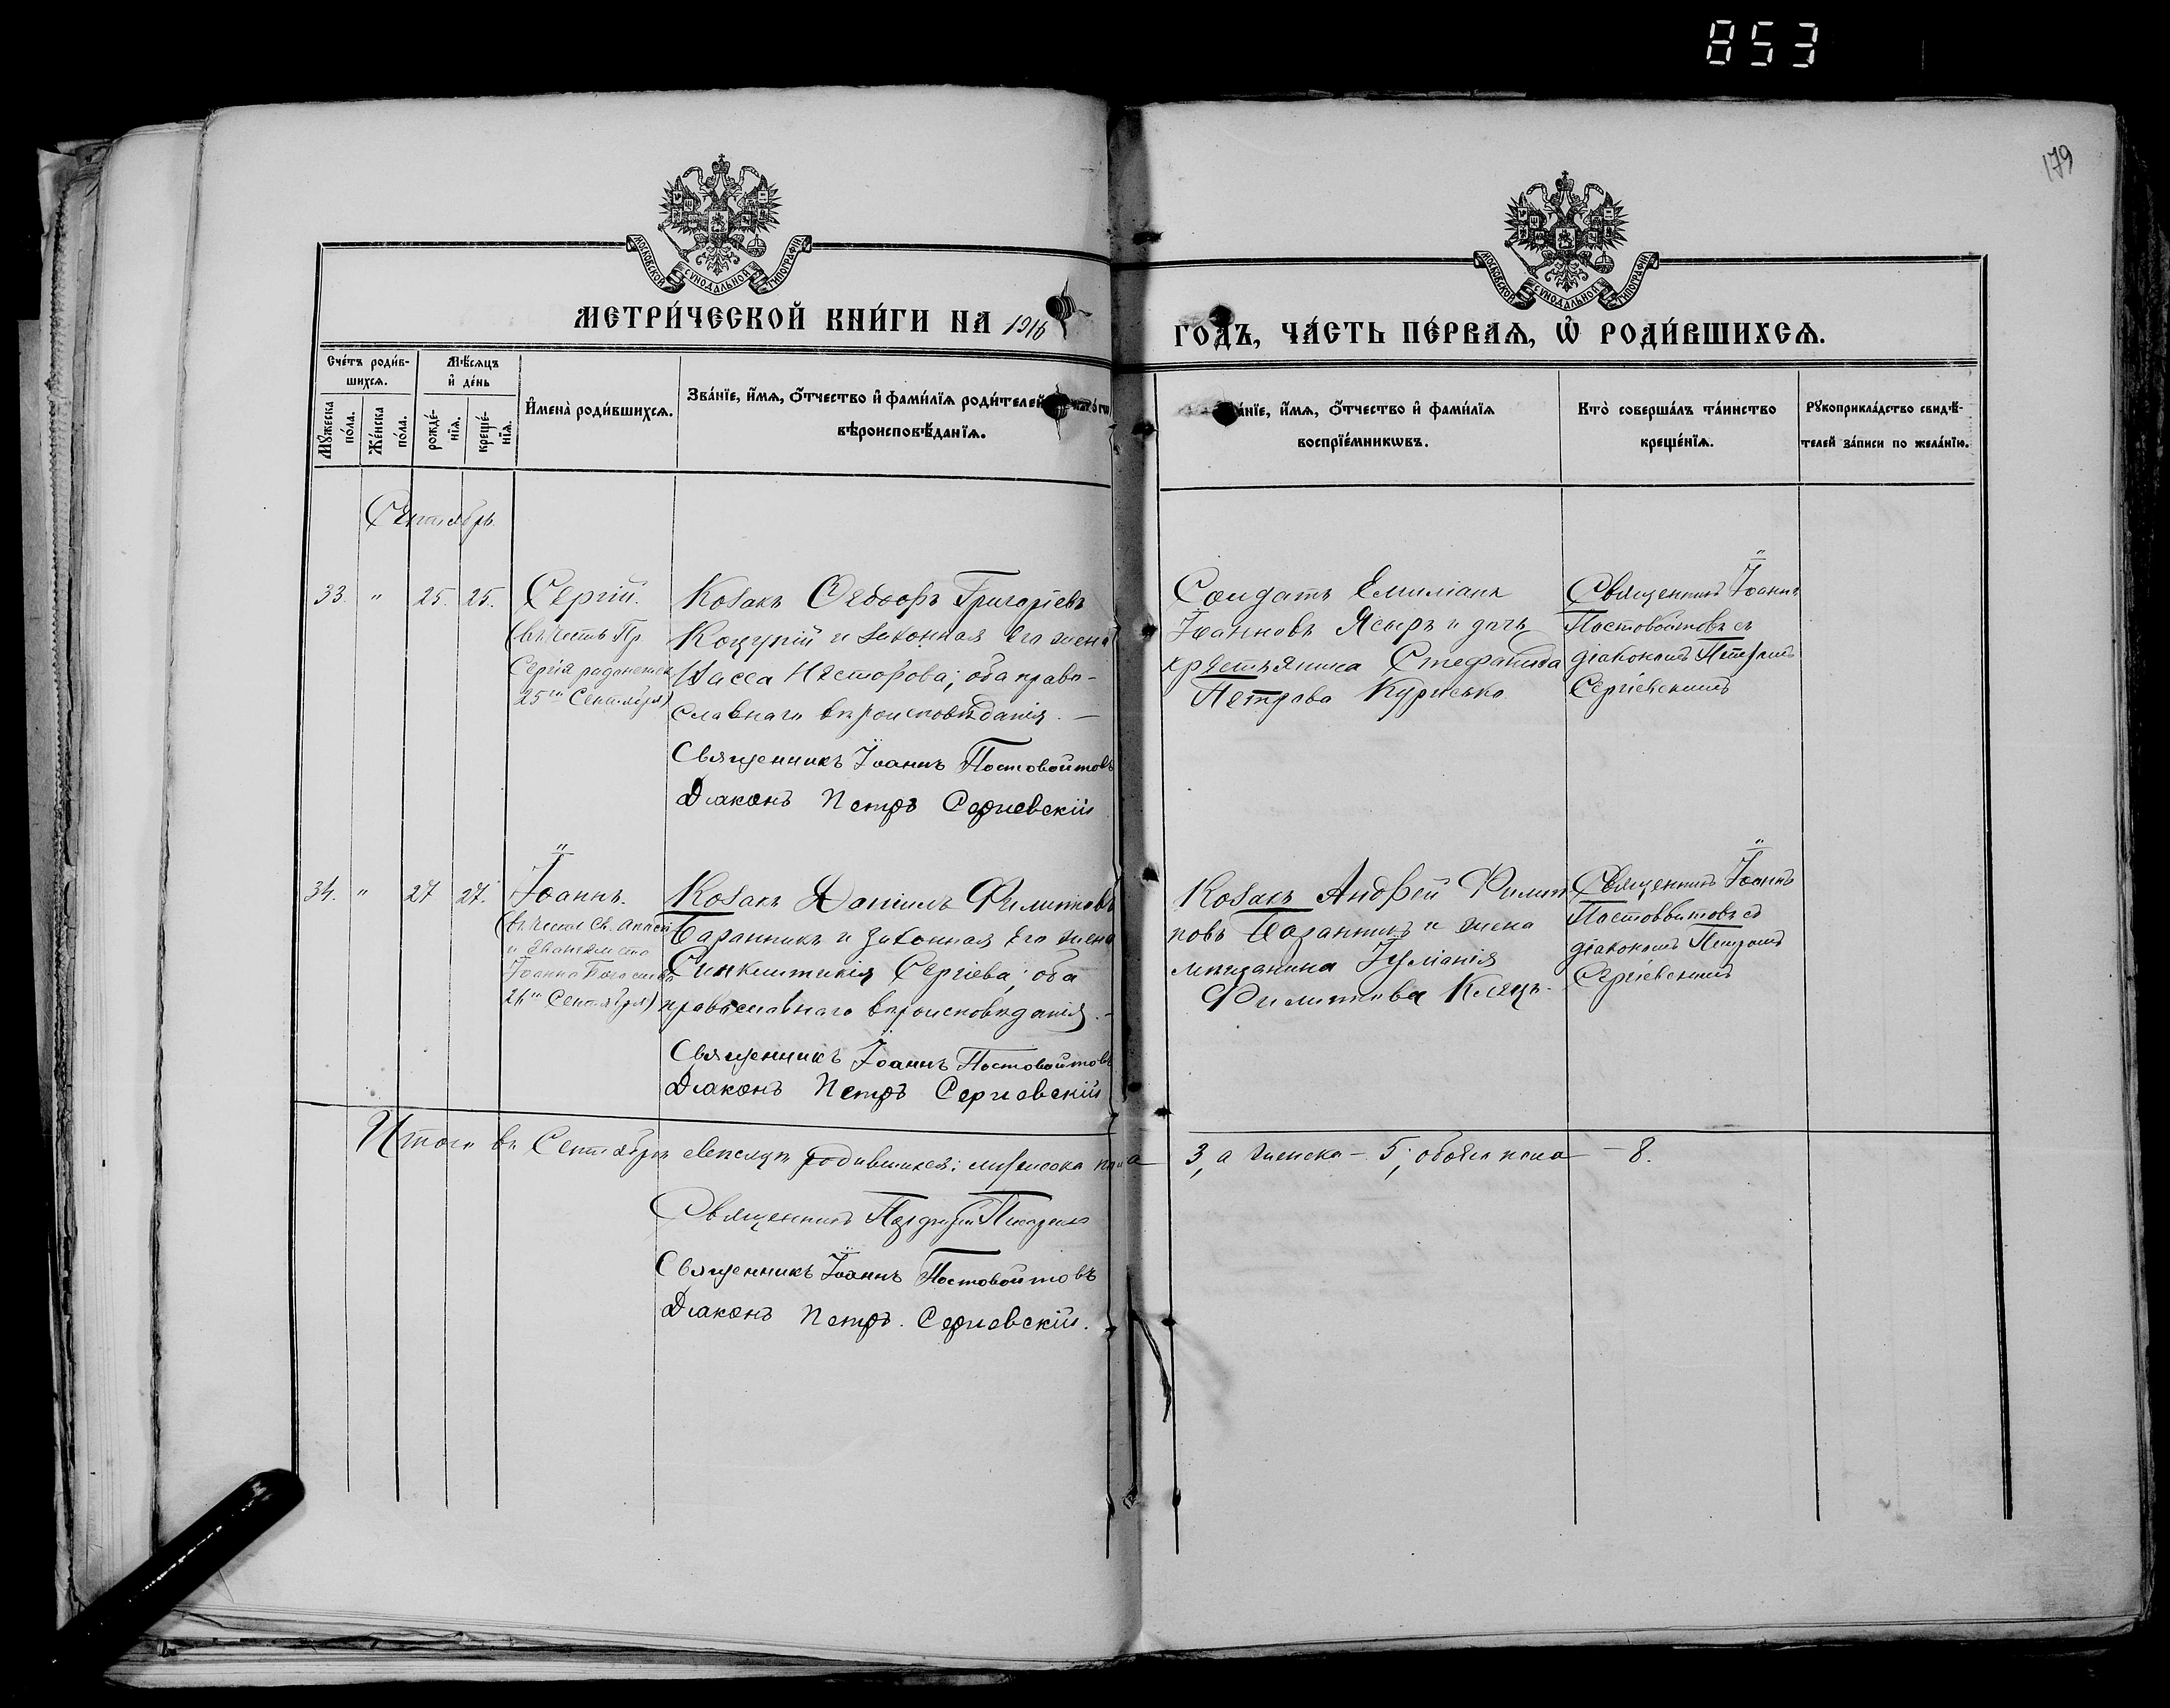 853
179
МОСКОВСКОЙ СѴНОДАЛЬНОЙ ТИПОГРАФІИ
МОСКОВСКОЙ СѴНОДАЛЬНОЙ ТИПОГРАФІИ
МЕТРИ́ЧЕСКОЙ КНИ́ГИ НА 1916
ГОДЪ, ЧА́СТЬ ПЕ́РВАѦ, Ѽ РОДИ́ВШИХСѦ.
Сче́тъ роди́в-
шихсѧ.
Мѣ́сѧцъ
и҆ де́нь
Мꙋ́жеска
по́ла.
Же́нска
по́ла.
рожде́-
нїѧ.
креще́-
нїѧ.
И҆мена̀ роди́вшихсѧ.
Зва́нїе, и҆́мѧ, ѻ҆́тчество и҆ фами́лїѧ роди́телей
вѣроисповѣ́данїѧ.
а́нїе, и҆́мѧ, ѻ҆́тчество и҆ фами́лїѧ
воспрїе́мникѡвъ.
Кто̀ соверша́лъ та́инство
креще́нїѧ.
Рꙋкоприкла́дство свидѣ́-
телей за́писи по жела́нїю.
Сентябрь
33. " 25. 25. Сергій.
(въ честь Пр.
Сергія радонежск.
25го Сентября)
Козакъ Ѳеодоръ Григоріевъ
Коцупій и законная его жена
Васса Несторова; оба право-
славнаго вѣроисповѣданія. —
Священникъ Іоаннъ Постовойтовъ
Діаконъ Петръ Сергіевскій
Солдатъ Емиліанъ
Іоанновъ Ясыръ и дочь
крестьянина Стефанида
Петрова Курисько.
Священникъ Іоаннъ
Постовойтовъ съ
діакономъ Петромъ
Сергіевскимъ
34. " 27 27. Іоаннъ.
(въ честь Св. Апост.
и Евангелиста
Іоанна Богослова
26го Сентября)
Козакъ Даніилъ Филипповъ
Баранникъ и законная его жена
Синклитикія Сергіева; оба
православнаго вѣроисповѣданія. —
Священникъ Іоаннъ Постовойтовъ
Діаконъ Петръ Сергіевскій
Козакъ Андрей Филип-
повъ Баранникъ и жена
мѣщанина Іуліанія
Филиппова
Священникъ Іоаннъ
Постовойтовъ съ
діакономъ Петромъ
Сергіевскимъ
Итого въ Сентябрѣ мѣсяцѣ родившихся: мужеска пола 3, а женска — 5; обоего пола — 8.
Священникъ
Священникъ Іоаннъ Постовойтовъ
Діаконъ Петръ Сергіевскій.